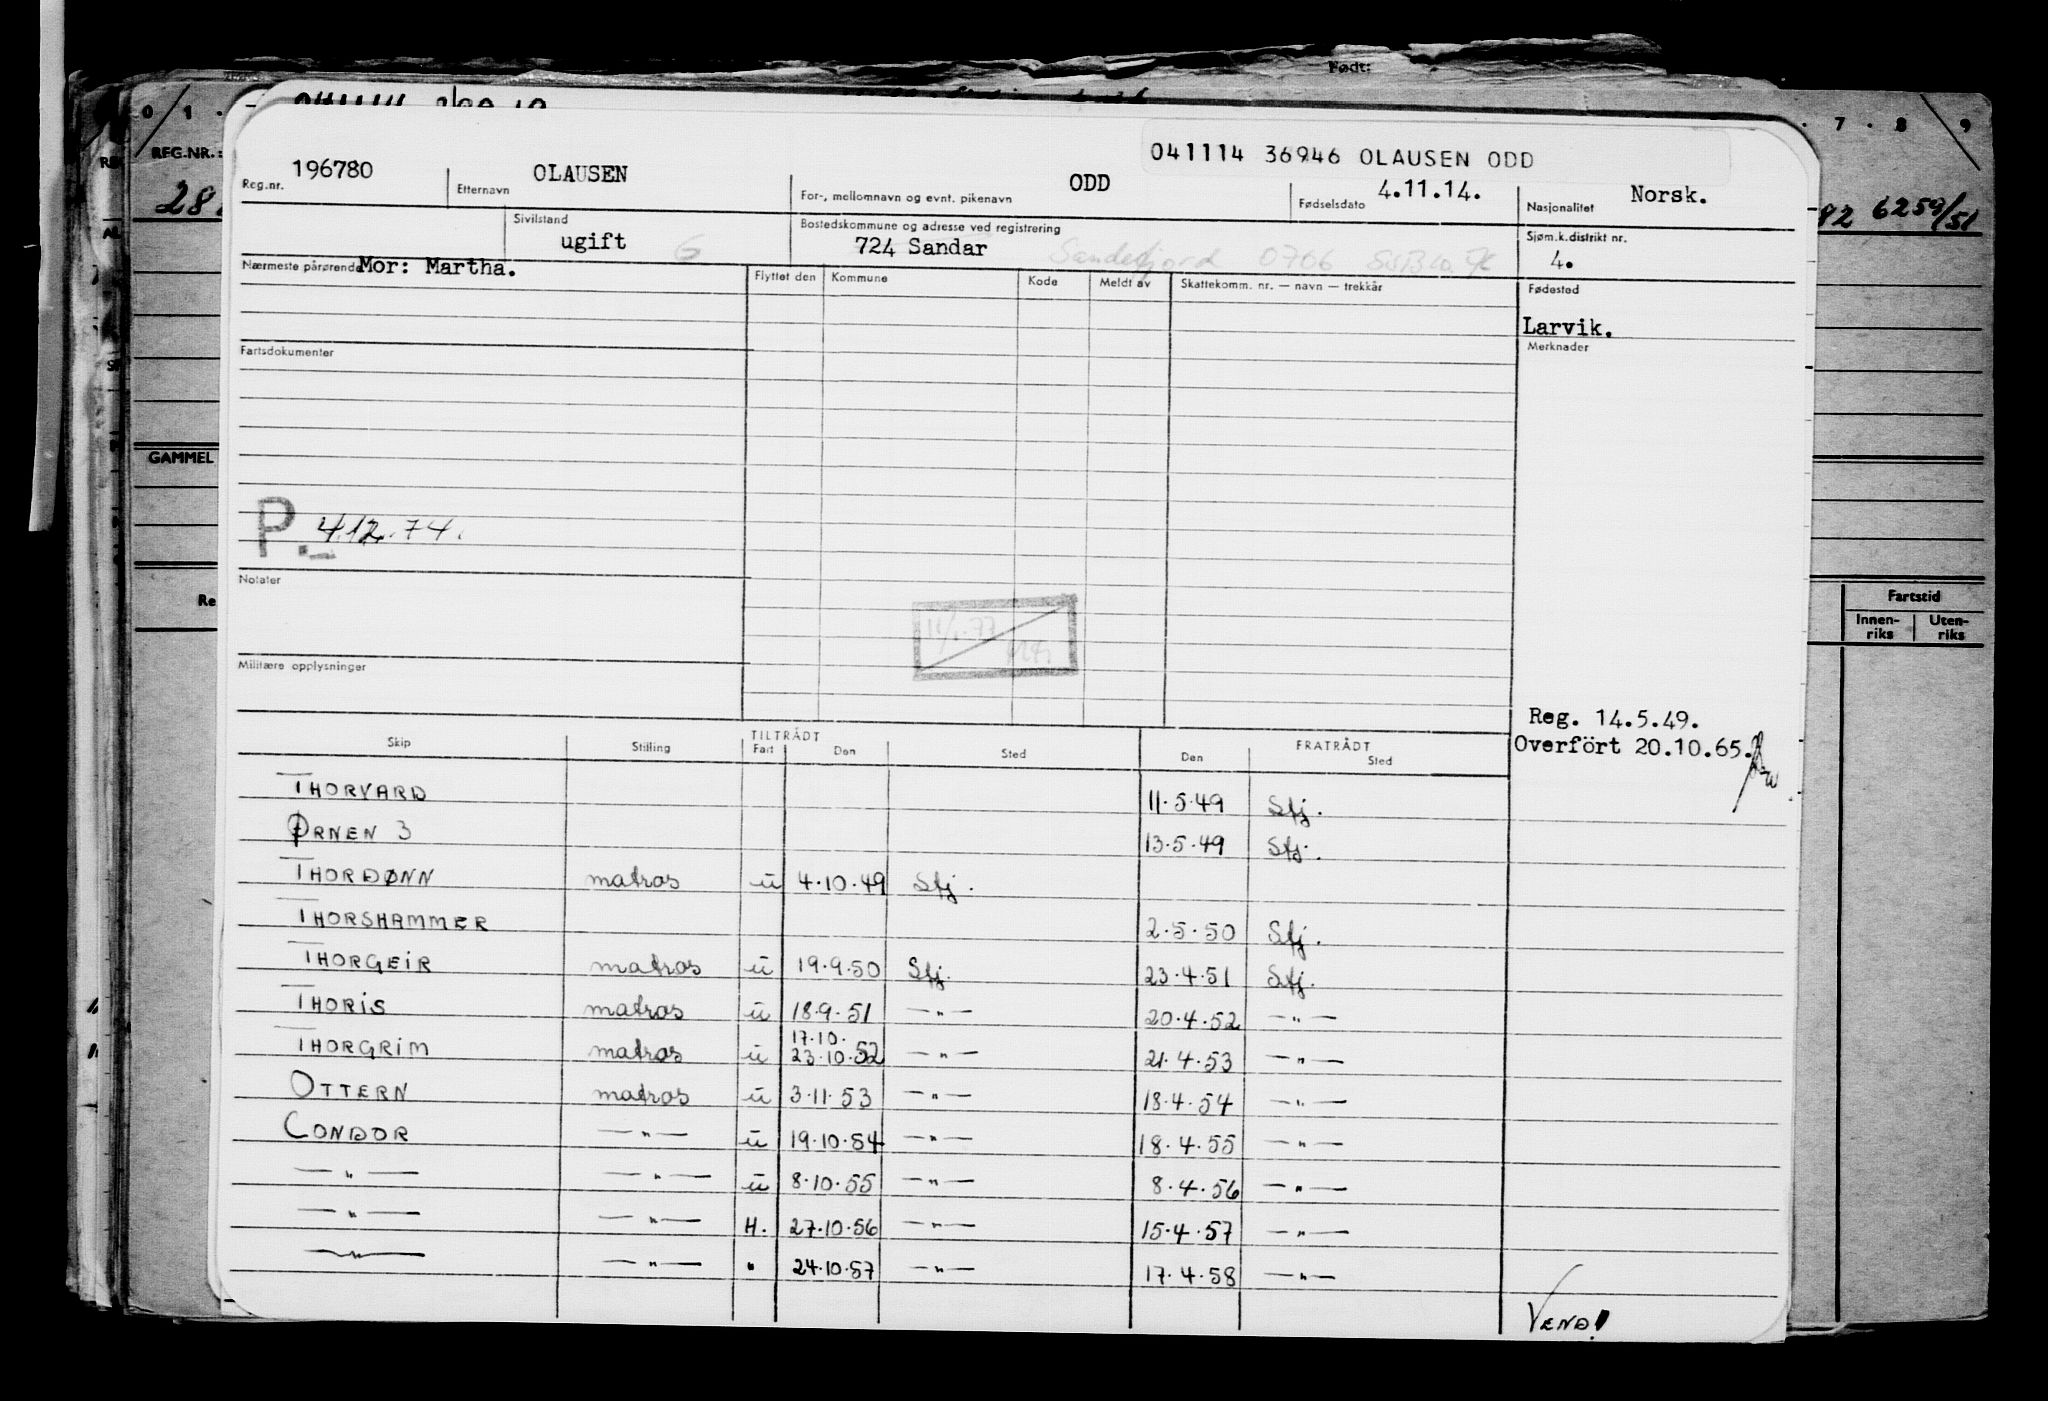 Født:
0 1 7 8 9
REG.NR.:
28
82 6259/51
GAMMEL
Fartstid
Innen-riks Uten-riks
041114 36946 OLAUSEN ODD
Reg.nr. 196780 Etternavn OLAUSEN For-, mellomnavn og evnt. pikenavn ODD Fødselsdato 4.11.14. Nasjonalitet Norsk.
Sivilstand ugift G Bostedskommune og adresse ved registrering 724 Sandar Sandefjord 0706 Sjøm.k.distrikt nr. 4.
Nærmeste pårørende Mor: Martha. Flyttet den Kommune Kode Meldt av Skattekomm. nr. — navn — trekkår Fødested
Larvik.
Fartsdokumenter Merknader
P. 4.12.74.
Notater
11/1-77
Militære opplysninger
Reg. 14.5.49.
Overfört 20.10.65.
TILTRÅDT FRATRÅDT
Skip Stilling Fart Den Sted Den Sted
THORVARD 11.5.49 Sfj.
ØRNEN 3 13.5.49 Sfj.
THORDØNN matros u 4.10.49 Sfj.
THORSHAMMER 2.5.50 Sfj.
THORGEIR matros u 19.9.50 Sfj. 23.4.51 Sfj.
THORIS matros u 18.9.51 —"— 20.4.52 —"—
17.10.
THORGRIM matros u 23.10.52 —"— 21.4.53 —"—
OTTERN matros u 3.11.53 —"— 18.4.54 —"—
CONDOR —"— u 19.10.54 —"— 18.4.55 —"—
—"— —"— u 8.10.55 —"— 8.4.56 —"—
—"— —"— H. 27.10.56 —"— 15.4.57 —"—
—"— —"— " 24.10.57 —"— 17.4.58 —"—
VEND!